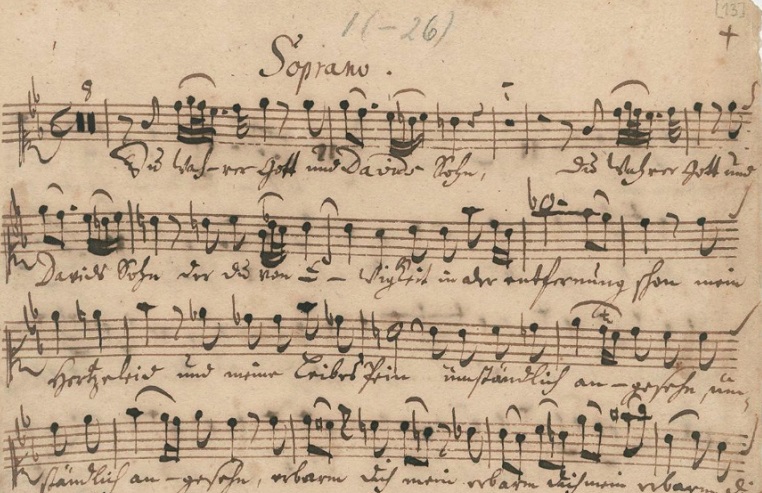 [13]
1(-26)
Soprano.
8
Du wah-rer Gott und Davids Sohn, du wahrer Gott und
Davids Sohn der du von E-wigkeit in der entfernung schon mein
Hertzeleid und meine Leibes Pein umständlich an-gesehn, um,
ständlich an-gesehn, erbarm dich mein erbarm dich mein erbarm di